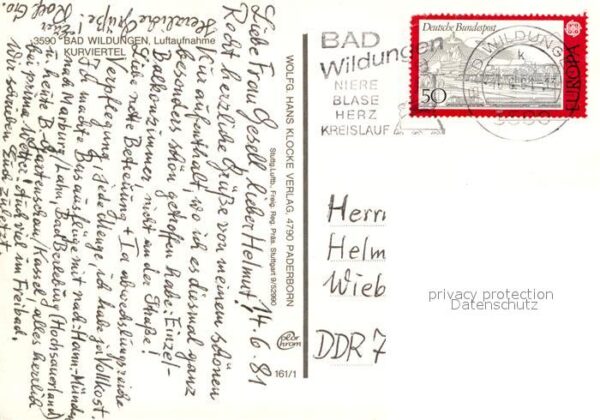 3590 BAD WILDUNGEN, Luftaufnahme
KURVIERTEL
Liebe Frau Gesell, lieber Helmut! 14.6.81
Recht herzliche Grüße von meinem schönen
Kuraufenthalt, wo ich es diesmal ganz
besonders schön getroffen habe: Einzel-
Balkonzimmer, nicht an der Straße!
Liebe nette Betreuung + Ia abwechslungsreiche
Verpflegung, jede Menge, ich habe ja Vollkost.
Ich machte Busausflüge mit nach: Hann-Münden,
nach Marburg/Lahn, Bad Berleburg (Hochsauerland)
u. heute B-Gartenschau/Kassel, alles herrlich
bei prima Wetter. Auch viel im Freibad.
Wir schrieben Euch zuletzt.
Herzliche Grüße!
Euer
WOLFG. HANS KLOCKE VERLAG, 4790 PADERBORN
Stuttg. Luftb. Freig. Reg. Präs. Stuttgart 9/52990
color
chrom
161/1
BAD
Wildungen
NIERE
BLASE
HERZ
KREISLAUF
Deutsche Bundespost
50
EUROPA
BAD WILDUNGEN
k
Herrn
Helm
Wieb
DDR 7
privacy protection
Datenschutz